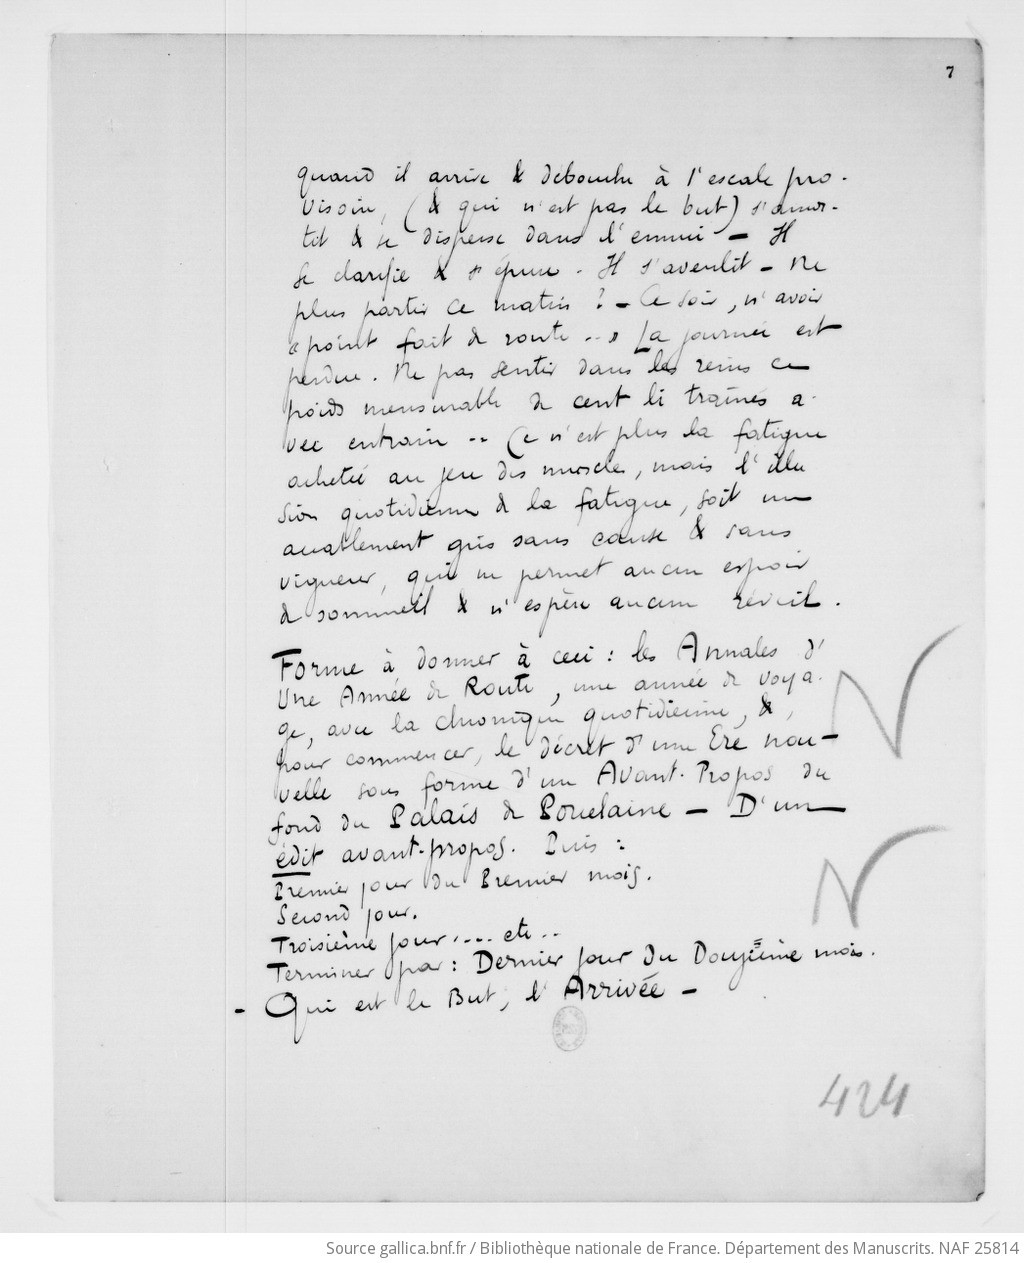 7
quand il arrive & débouche à l'escale pro-
visoire, (& qui n'est pas le but) s'amor-
tit & se disperse dans l'ennui — Il
se clarifie & s'épure. Il s'aveulit — Ne
plus partir ce matin ? — Ce soir, n'avoir
« point fait de route ... » La journée est
perdue. Ne pas sentir dans les reins ce
poids mensurable de cent li traînés a-
vec entrain .. Ce n'est plus la fatigue
achetée au jeu des muscles, mais l'illu
sion quotidienne de la fatigue, soit un
accablement gris sans cause & sans
vigueur, qui ne permet aucun espoir
de sommeil & n'espère aucun réveil.
Forme à donner à ceci : les Annales d'
Une Année de Route, une année de voya-
ge, avec la chronique quotidienne, &,
pour commencer, le décret d'une Ere nou-
velle sous forme d'un Avant-Propos du
fond du Palais de Porcelaine — D'un
édit avant-propos. Puis :
Premier jour du Premier mois.
Second jour.
Troisième jour .... etc ..
Terminer par : Dernier jour du Douzième mois.
- Qui est le But, l'Arrivée —
424
Source gallica.bnf.fr / Bibliothèque nationale de France. Département des Manuscrits. NAF 25814